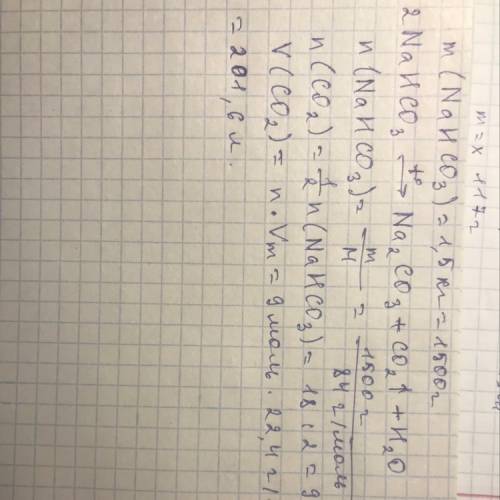 m = x 117г
m(NaHCO₃) = 1,5 кг = 1500г
2NaHCO₃ →t° Na₂CO₃ + CO₂↑ + H₂O
n(NaHCO₃) = m/M = 1500г/84 г/моль
n(CO₂) = 1/2 n(NaHCO₃) = 18 : 2 = 9
V(CO₂) = n · Vm = 9 моль · 22,4 г/
= 201,6 л.